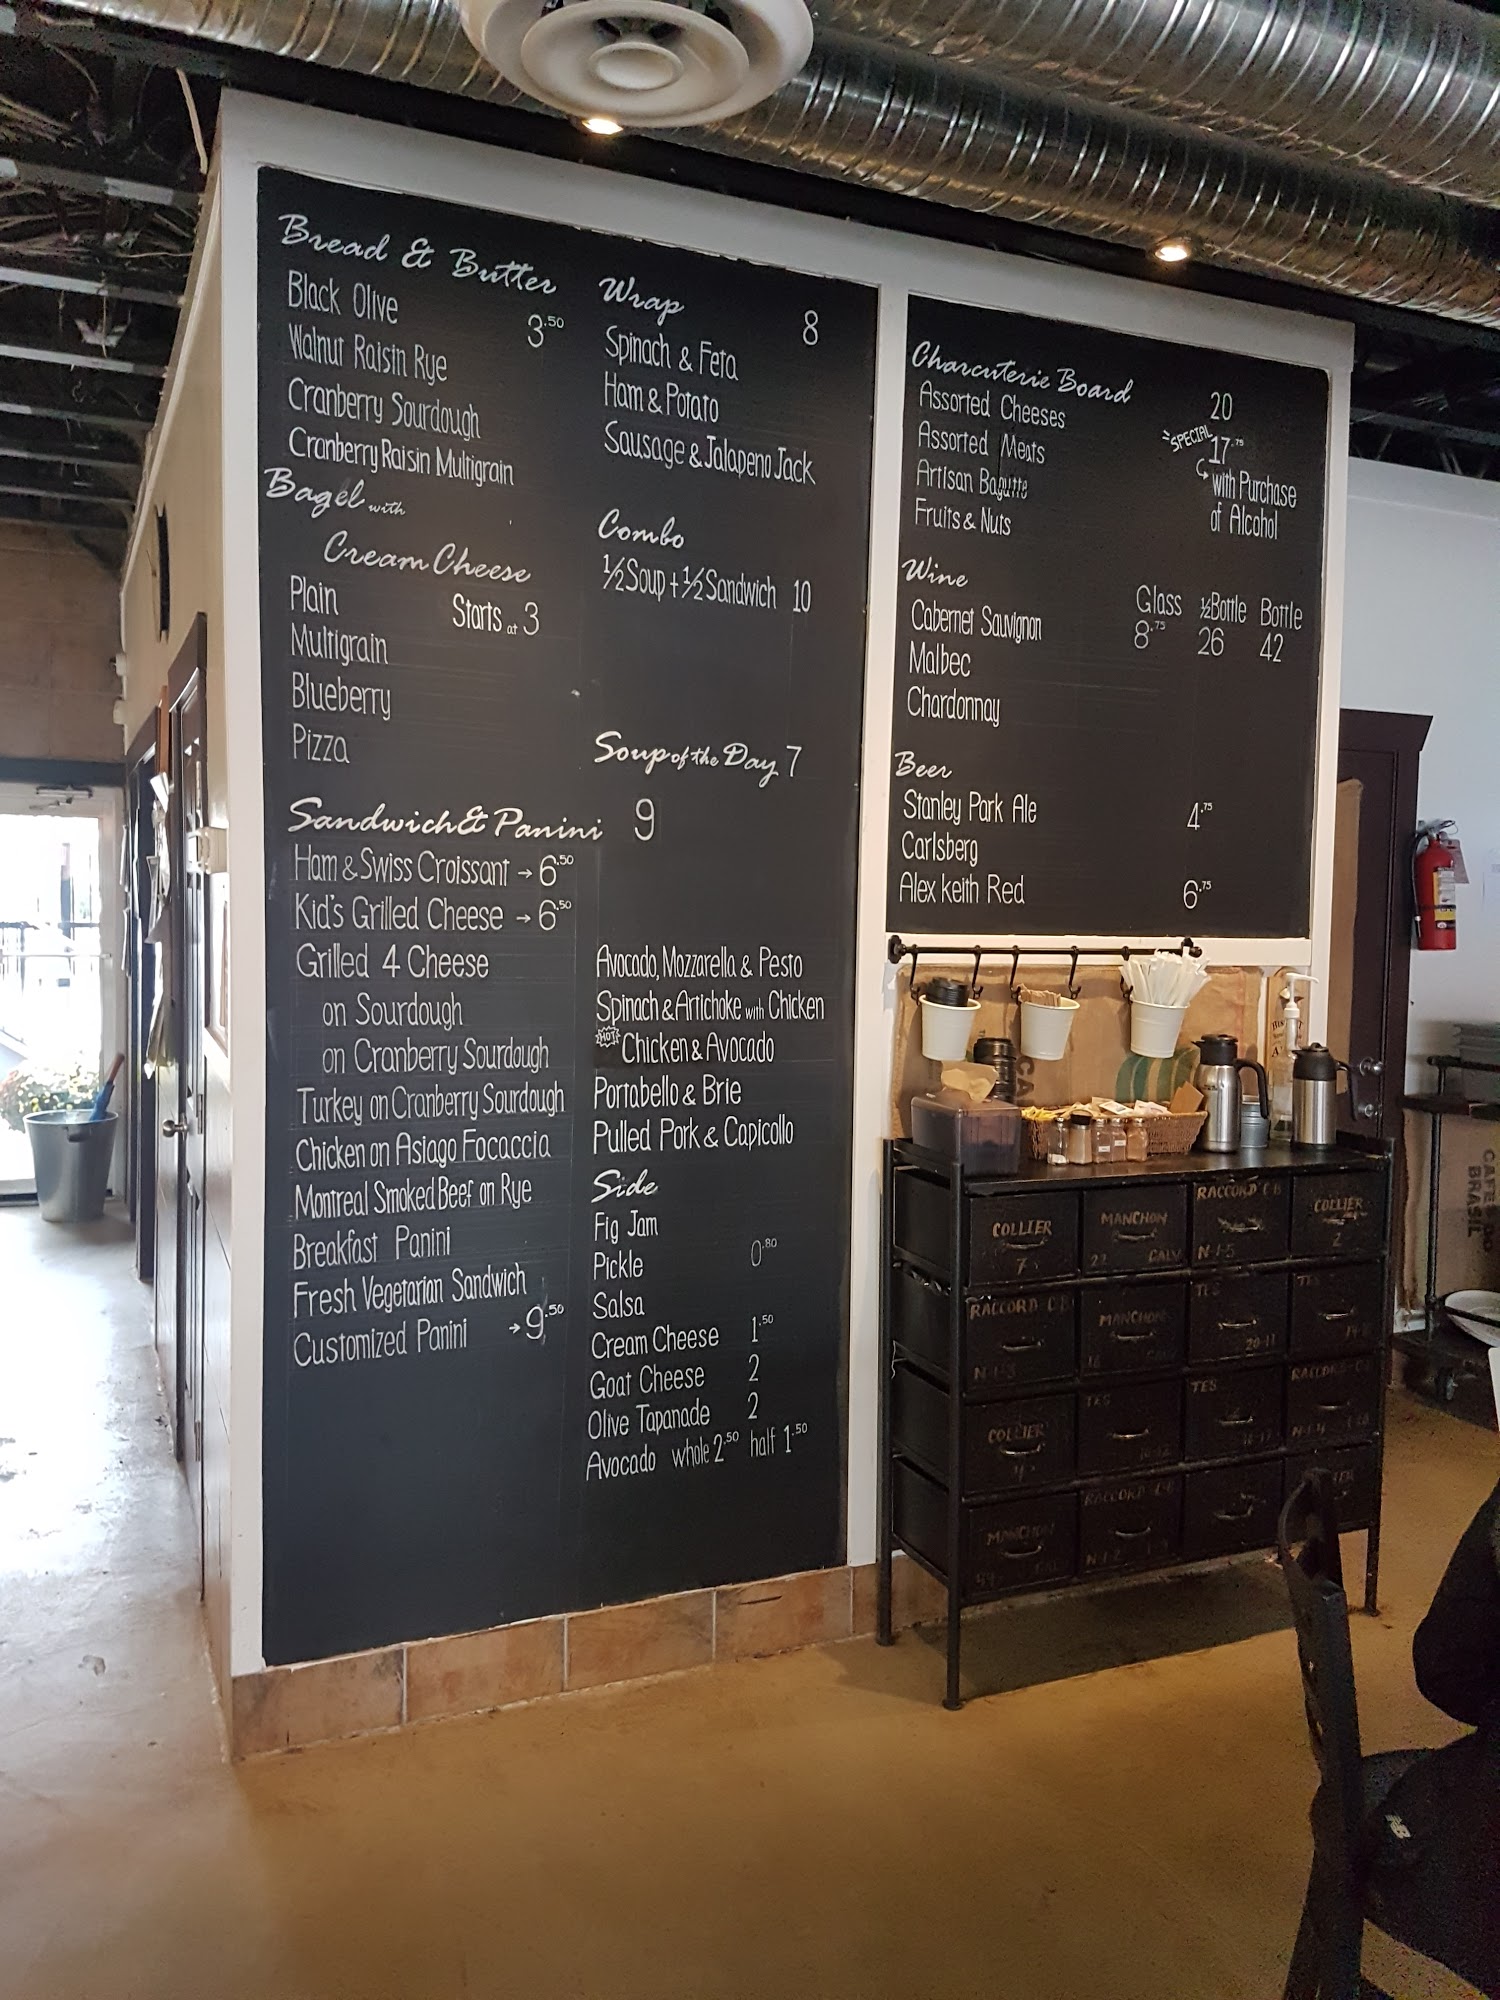 Bread & Butter
Black Olive 3.50
Walnut Raisin Rye
Cranberry Sourdough
Cranberry Raisin Multigrain
Bagel with
Cream Cheese
Plain Starts at 3
Multigrain
Blueberry
Pizza
Sandwich & Panini 9
Ham & Swiss Croissant → 6.50
Kid's Grilled Cheese → 6.50
Grilled 4 Cheese
on Sourdough
on Cranberry Sourdough
Turkey on Cranberry Sourdough
Chicken on Asiago Focaccia
Montreal Smoked Beef on Rye
Breakfast Panini
Fresh Vegetarian Sandwich
Customized Panini → 9.50
Wrap 8
Spinach & Feta
Ham & Potato
Sausage & Jalapeno Jack
Combo
½ Soup + ½ Sandwich 10
Soup of the Day 7
Avocado, Mozzarella & Pesto
Spinach & Artichoke with Chicken
HOT Chicken & Avocado
Portabello & Brie
Pulled Pork & Capicollo
Side
Fig Jam
Pickle 0.80
Salsa
Cream Cheese 1.50
Goat Cheese 2
Olive Tapanade 2
Avocado whole 2.50 half 1.50
Charcuterie Board 20
Assorted Cheeses
SPECIAL 17.75
Assorted Meats
with Purchase
of Alcohol
Artisan Bagutte
Fruits & Nuts
Wine
Glass ½ Bottle Bottle
Cabernet Sauvignon 8.75 26 42
Malbec
Chardonnay
Beer
Stanley Park Ale 4.75
Carlsberg
Alex Keith Red 6.75
COLLIER
7
MANCHON
22 GALV
RACCORD C-B
N-1-5
COLLIER
2
RACCORD C-B
N-1-3
MANCHON
TES
20-11
COLLIER
4
TES
TES
RACCORD C-B
N-1-4
MANCHON
RACCORD C-B
N-1-2
CAFE DO
BRASIL